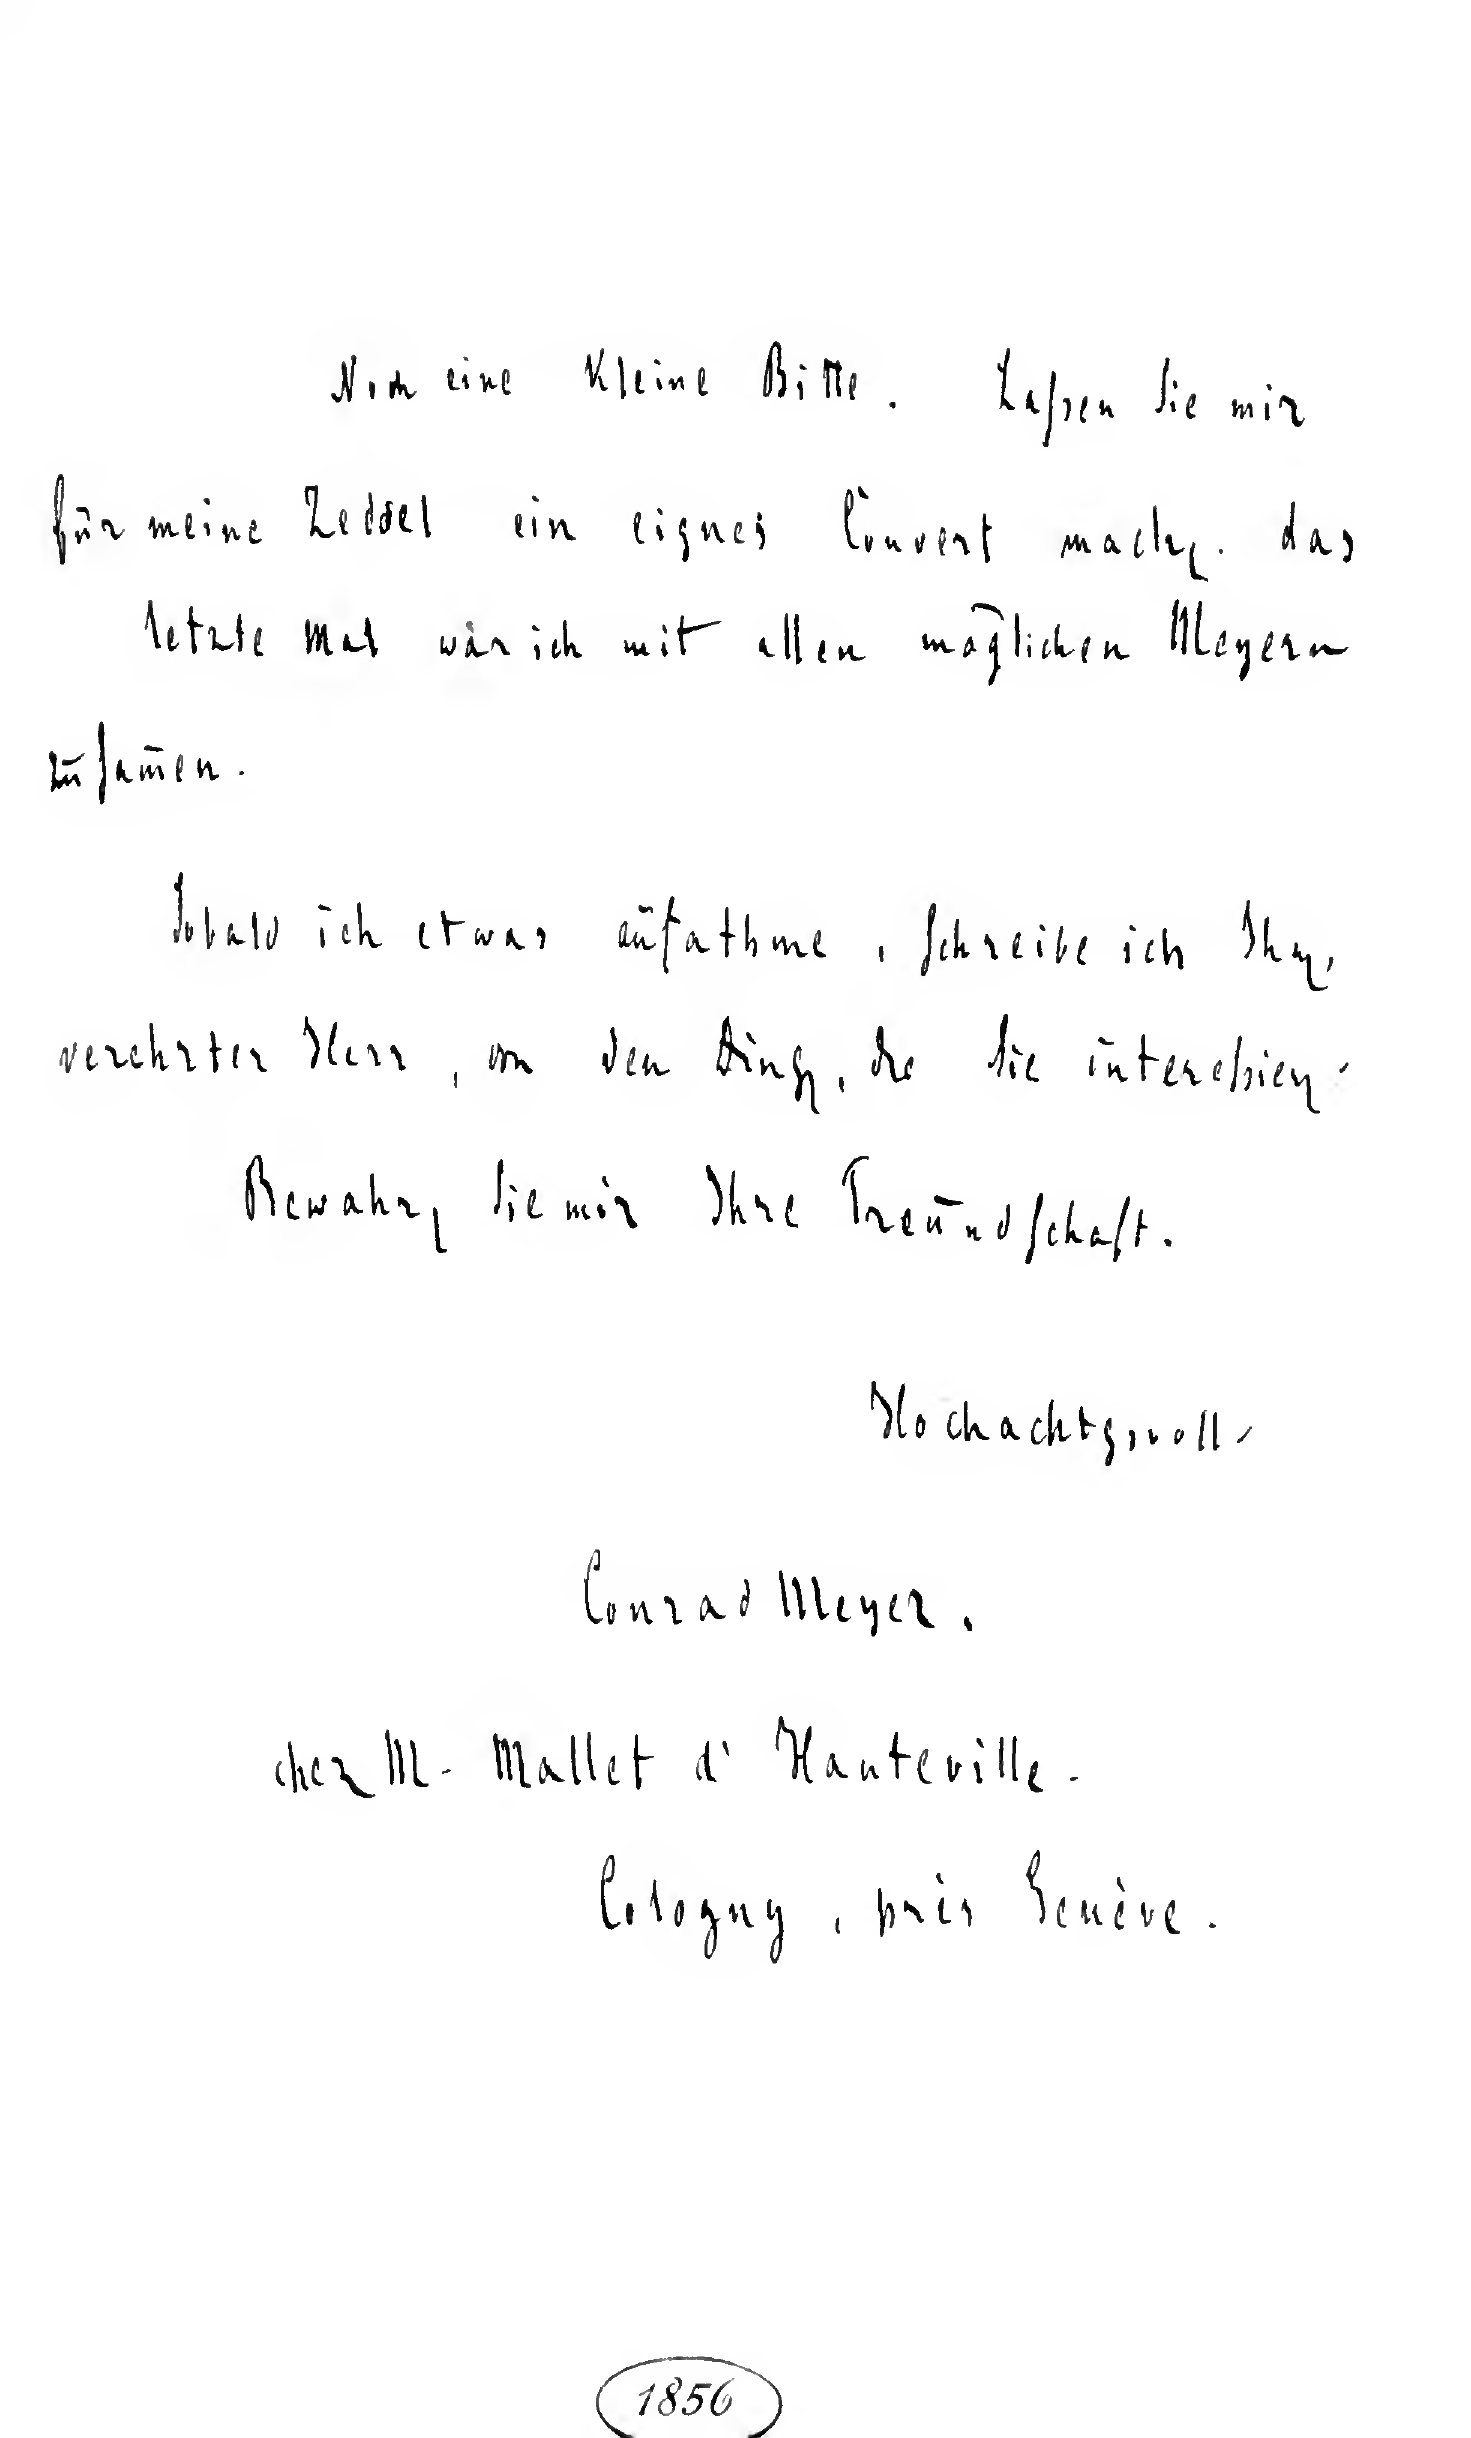 Noch eine kleine Bitte. Laßen Sie mir
für meine Zeddel ein eignes Couvert machen. das
letzte Mal wär ich mit allen möglichen Meyern
zusam̄en.
Sobald ich etwas aufathme, schreibe ich Ihnen,
verehrter Herr, von den Dingen, die Sie intereßieren.
Bewahren Sie mir Ihre Freundschaft.
Hochachtgsvoll.
Conrad Meyer.
chez M. Mallet d'Hauteville.
Cologny, près Genève.
1856